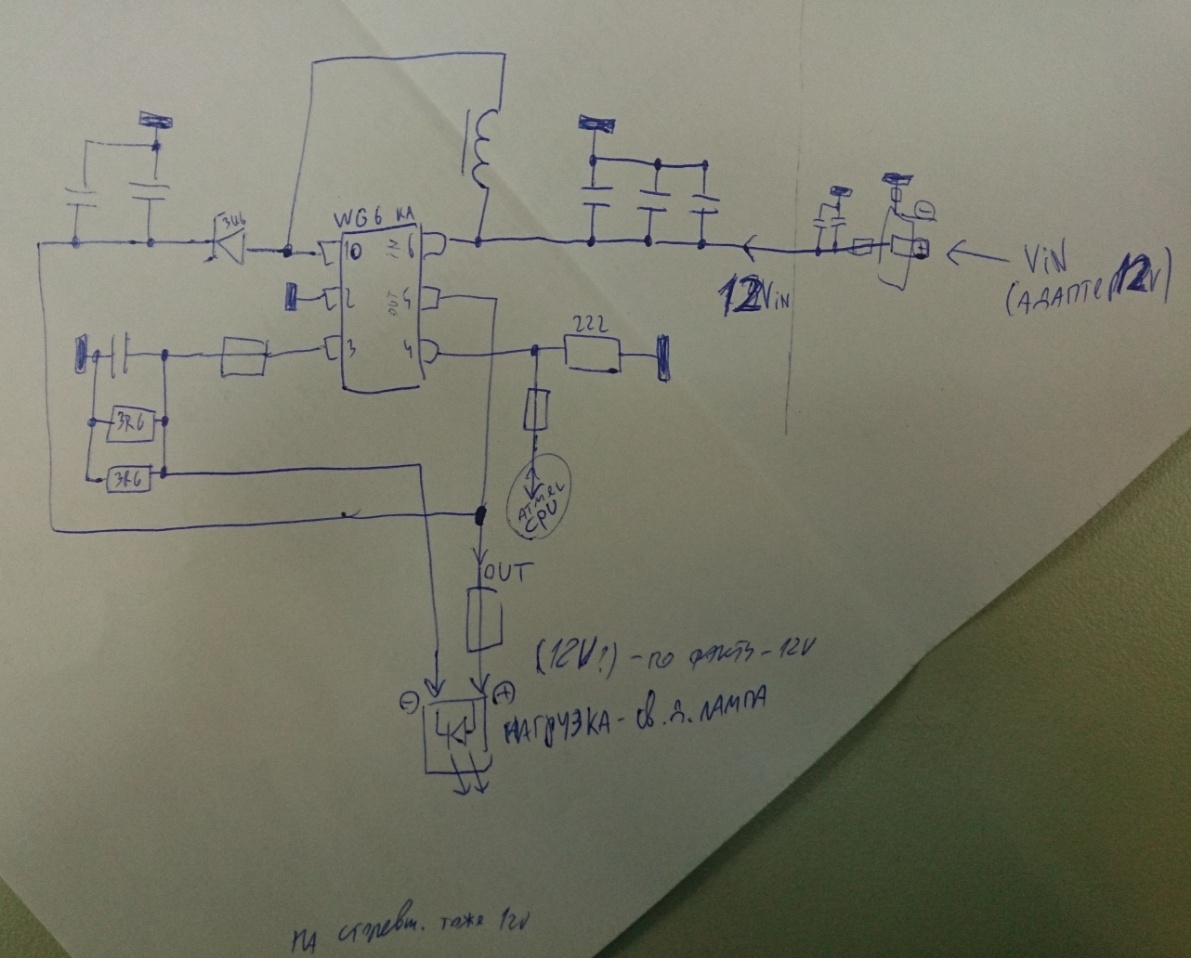 WG6 KA
10
6
2
5
OUT
3
4
222
3R6
3R6
ATMEL
CPU
12Vin
ViN
(АДАПТЕР 12V)
OUT
(12V?) - по факту - 12V
НАГРУЗКА - св. д. ЛАМПА
НА
тоже 12V